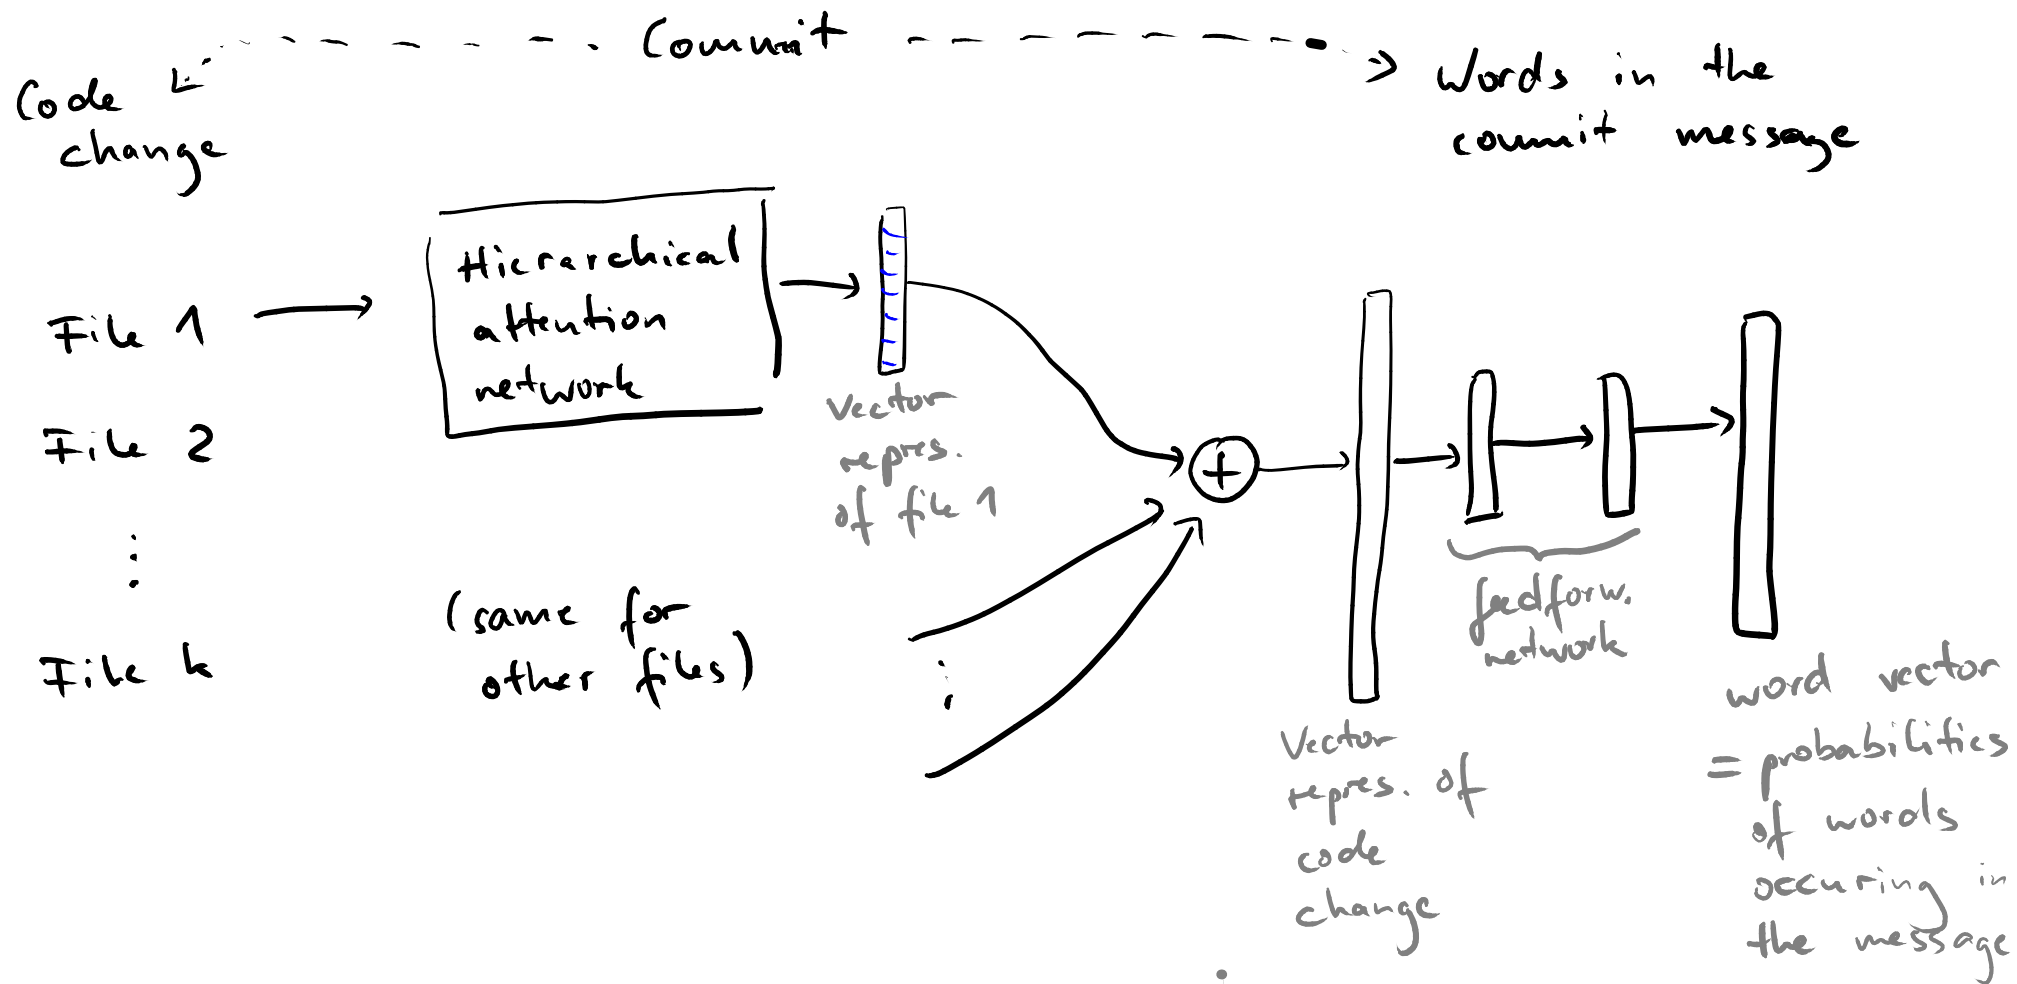 Commit
Code
change
Words in the
commit message
File 1
File 2
⋮
File k
Hierarchical
attention
network
(same for
other files)
Vector
repres.
of file 1
+
⋮
Vector
repres. of
code
change
feedforw.
network
word vector
= probabilities
of words
occuring in
the message